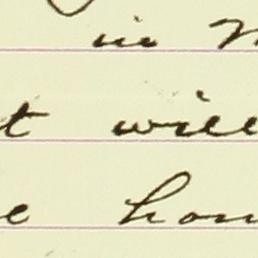 in
t will
e hou